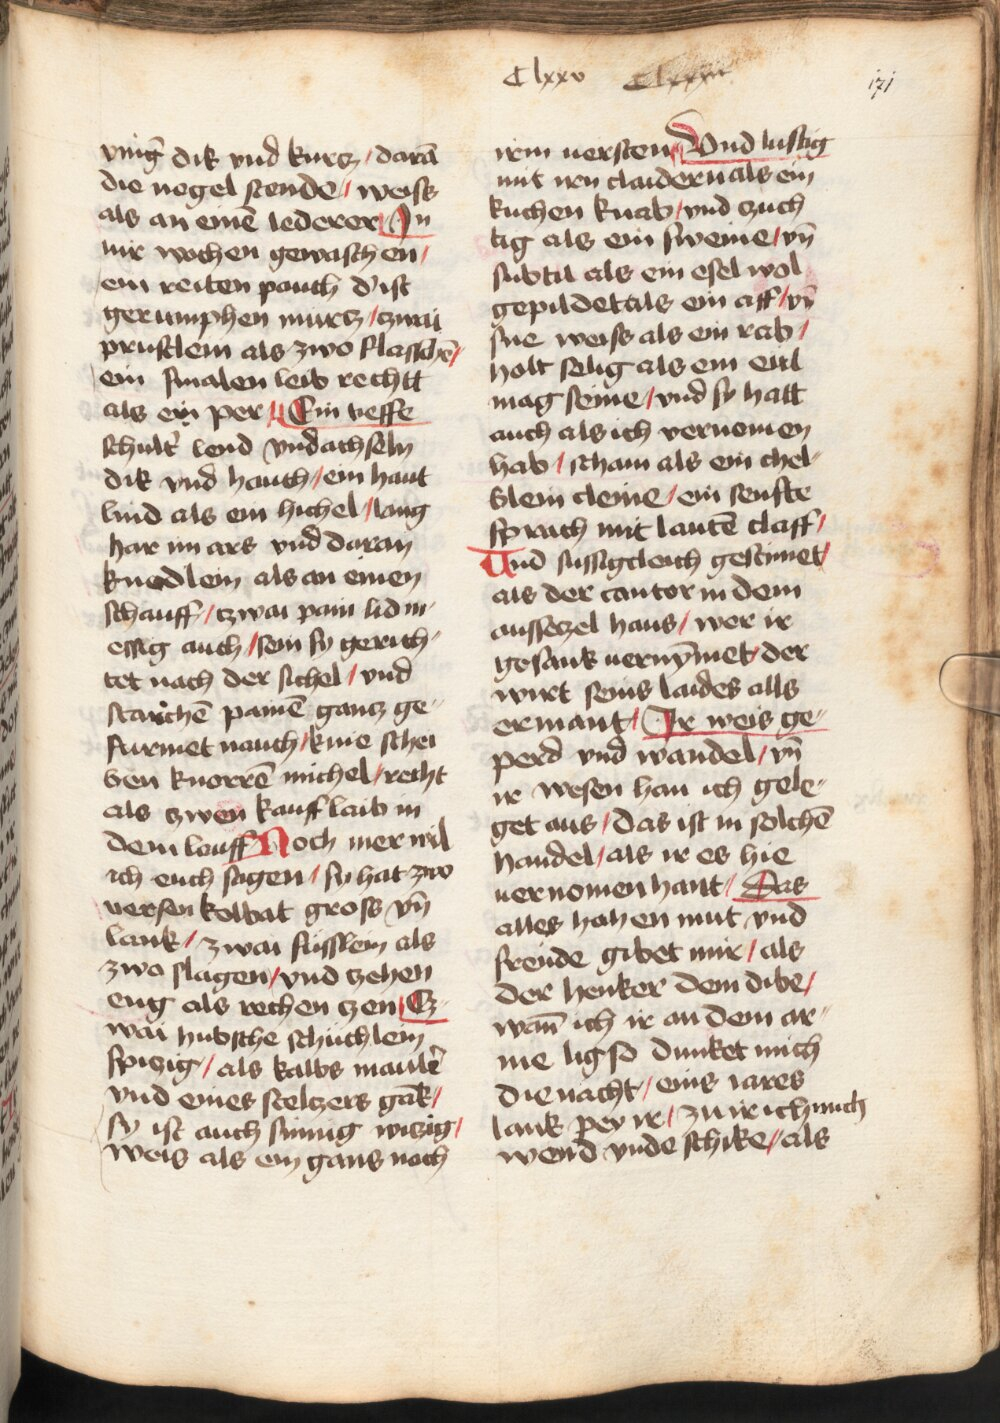 Clxxv Clxxiii
171
vingˀ dik vnd kurcz / darā
die negel stende / weiss
als an einē lederer / In
nir wochen gewaschen /
ein reiten pauch d' ist
gerumphen murcz / czwai
prustlein als zwo flaschē /
ein smalen leib rechtt
als ein per / Ein teffe
schult' lend vnd achseln
dik vnd hauch / ein haut
lind als ein hichel / lang
har im ars vnd daran
knodlein als an einen
schauff / czwai pain lidm-
essig auch / sein sy gerich-
tet nach der sichel / vnd
starchē painē gancz ge-
furmet nauch / knie schei
ben knorrē michel / recht
als czwen kauff laib in
dem louff Noch mer wil
ich euch sagen / sy hat zwo
versen kolbat gross vn̄
lank / zwai fusslein als
zwo slagen / vnd czehen
eng als rechen czen / Cz-
wai hubsche schuchlein
spiczig / als kalbs maulˀ
vnd eines stelczers gāk /
sy ist auch sinnig wiczig /
weis als ein gans noch
irm uersten Vnd lustig
mit irn claidern als ein
kuchen knab / vnd czuch
tig als ein sweine / vn̄
subtil als ein esel wol
gepildet als ein aff / vn̄
sne weiss als ein rab /
holt selig als ein eitl
mag seine / vnd sy hatt
auch als ich vernomen
hab / scham als ein chel-
blein cleine / ein senfte
sprach mit lautē claff /
Und sussigcleich gestimet /
als der cantor in dem
aussetzel haus / wer ir
gesank uernȳmet / der
wirt seins laides alls
ermant / Ir weis ge-
perd vnd wandel / vn̄
ir wesen han ich gele-
get aus / das ist in solchē
handel / als ir es hie
uernomen hant / Das
alles hohen mut vnd
freude gibet mir / als
der henker dem dibe /
wan̄ ich ir an dem ar-
me lig so dunket mich
die nacht / eins iares
lank pey ir / zu ir ich mich
wend vnde schike / als